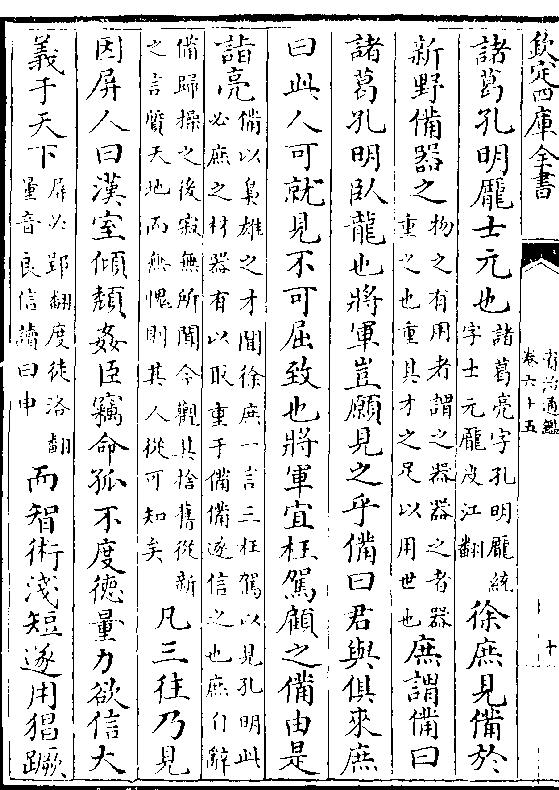 欽定四庫全書
資治通鑑
卷六十五
十
諸葛孔明龐士元也諸葛亮字孔明龐統字士元龐皮江翻徐庶見備於
新野備器之物之有用者謂之器器之者器重之也重其才之足以用世也庶謂備曰
諸葛孔明臥龍也將軍豈願見之乎備曰君與俱來庶
曰此人可就見不可屈致也將軍宜枉駕顧之備由是
詣亮備以梟雄之才聞徐庶一言三枉駕以見孔明此必庶之材器有以取重于備備遂信之也庶辭
備歸操之後寂無所聞今觀其捨舊從新之言質天地而無愧則其人從可知矣凡三往乃見
因屏人曰漢室傾頹姦臣竊命孤不度德量力欲信大
義于天下屏必郢翻度徒洛翻量音良信讀曰申而智術淺短遂用猖蹶